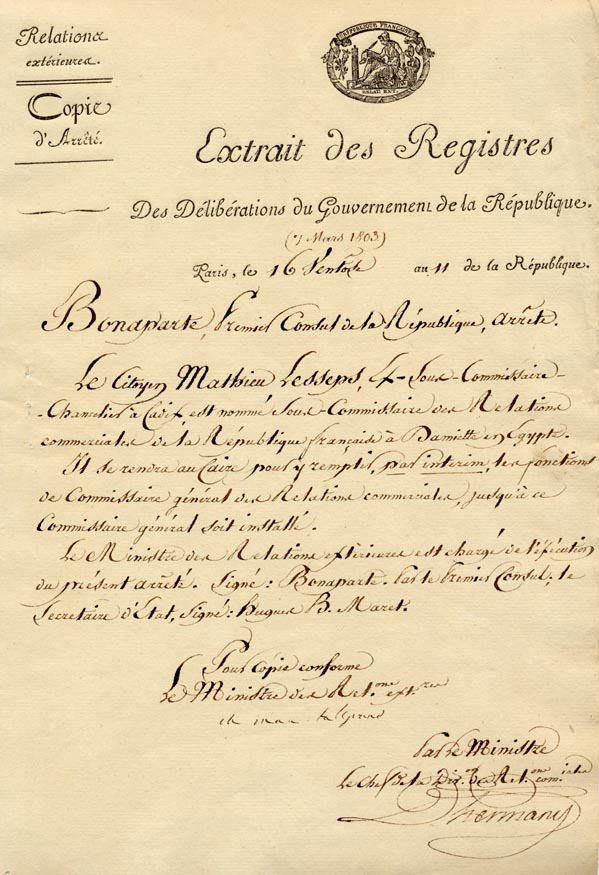 Relations
extérieures.
Copie
d'Arrêté.
RÉPUBLIQUE FRANÇAISE
RELAT. EXT.
Extrait des Registres
Des Délibérations du Gouvernement de la République.
(7 Mars 1803)
Paris, le 16 Ventose an 11 de la République.
Bonaparte, Premier Consul de la République, arrête.
Le Citoyen Mathieu Lesseps, Ex-Sous-Commissaire-
-Chancelier à Cadix est nommé Sous-Commissaire des Relations
commerciales de la République française à Damiette en Egypte.
Il se rendra au Caire pour y remplir, par intérim, les fonctions
de Commissaire général des Relations commerciales, jusqu'à ce
Commissaire général soit installé.
Le Ministre des Relations extérieures est chargé de l'éxécution
du présent arrêté. Signé: Bonaparte. Par le Premier Consul; le
Secretaire d'Etat, Signé: Hugues B. Maret.
Pour Copie conforme
Le Ministre des Relons extres
ch mau talleyrand
Par le Ministre
Le Chef de la Divon des Relons comciales
D'hermand